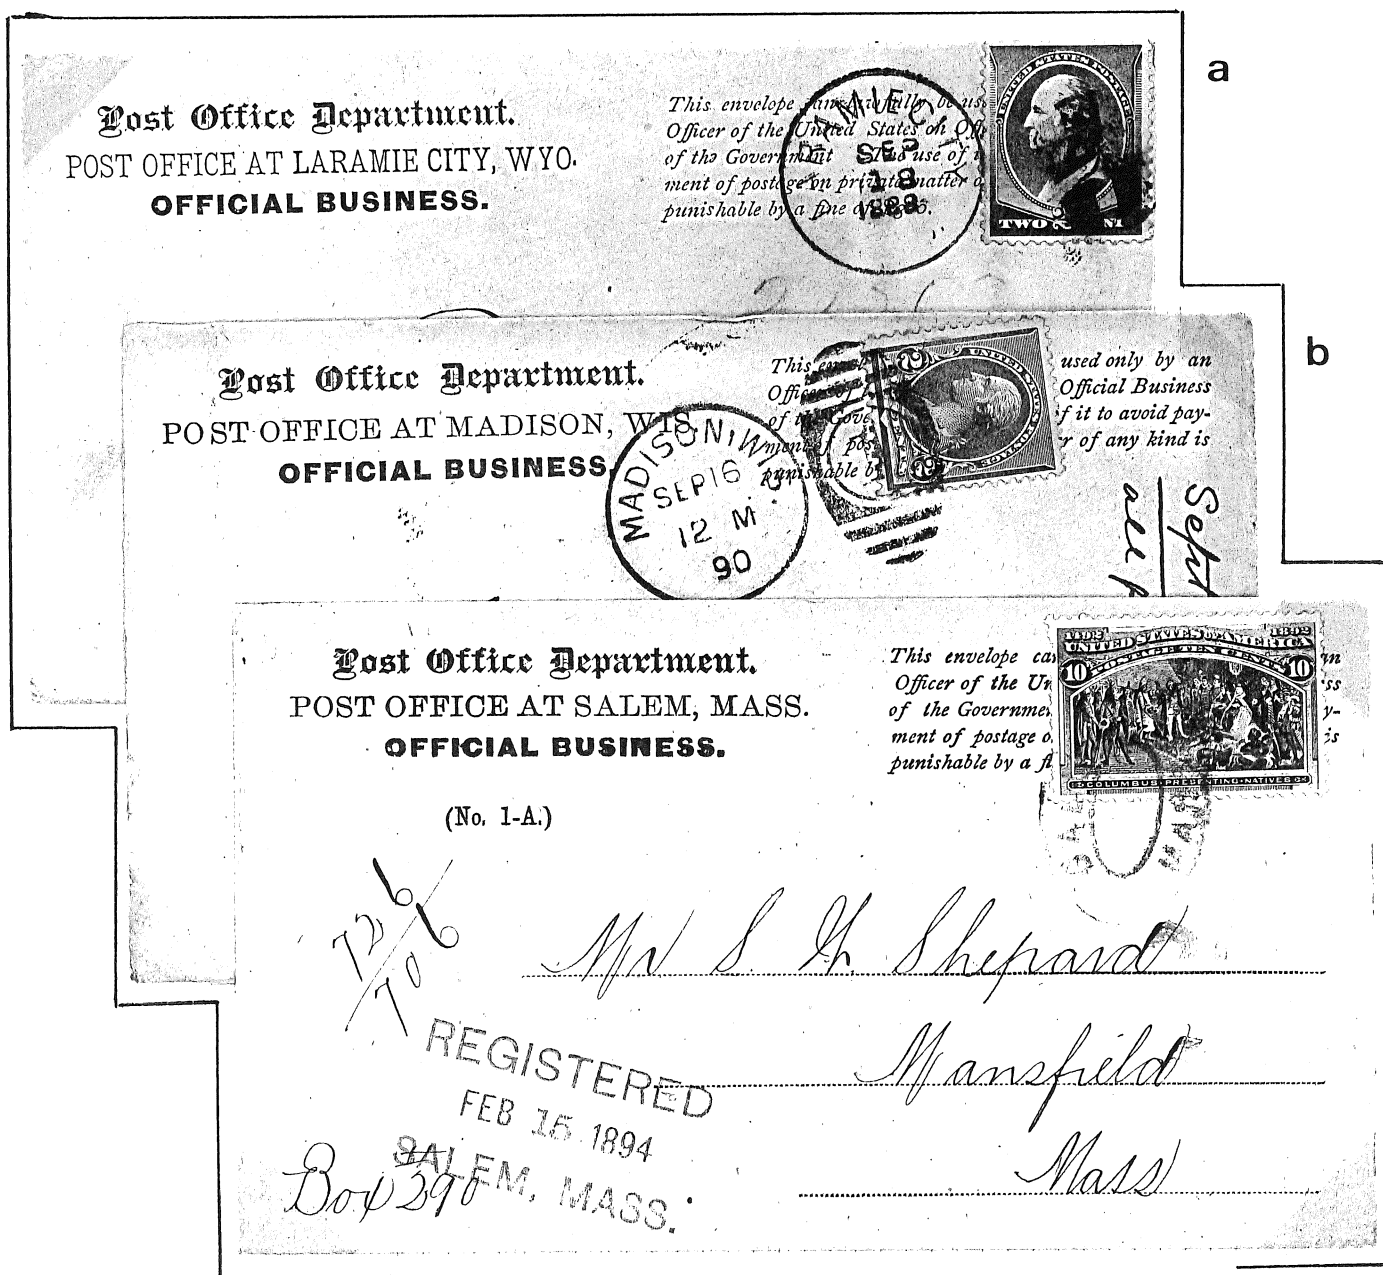 a
Post Office Department.
POST OFFICE AT LARAMIE CITY, WYO.
OFFICIAL BUSINESS.
This envelope can lawfully be us
Officer of the United States on Off
of the Government The use of i
ment of postage on private matter o
punishable by a fine of
LARAMIE CITY
SEP
18
1888
UNITED STATES POSTAGE
TWO
b
Post Office Department.
POST OFFICE AT MADISON, WIS.
OFFICIAL BUSINESS.
This envelope used only by an
Officer of Official Business
of the Gove f it to avoid pay-
ment of pos r of any kind is
punishable b
MADISON, WIS.
SEP 16
12 M
90
UNITED STATES POSTAGE
Sept
all
Post Office Department.
POST OFFICE AT SALEM, MASS.
OFFICIAL BUSINESS.
(No. 1-A.)
This envelope can an
Officer of the Un ess
of the Governme y-
ment of postage o is
punishable by a fi
1492 1892
UNITED STATES OF AMERICA
10 POSTAGE TEN CENTS 10
COLUMBUS PRESENTING NATIVES
726
706
Mr S. H. Shepard
Mansfield
Mass
REGISTERED
FEB 15 1894
SALEM, MASS.
Box 390